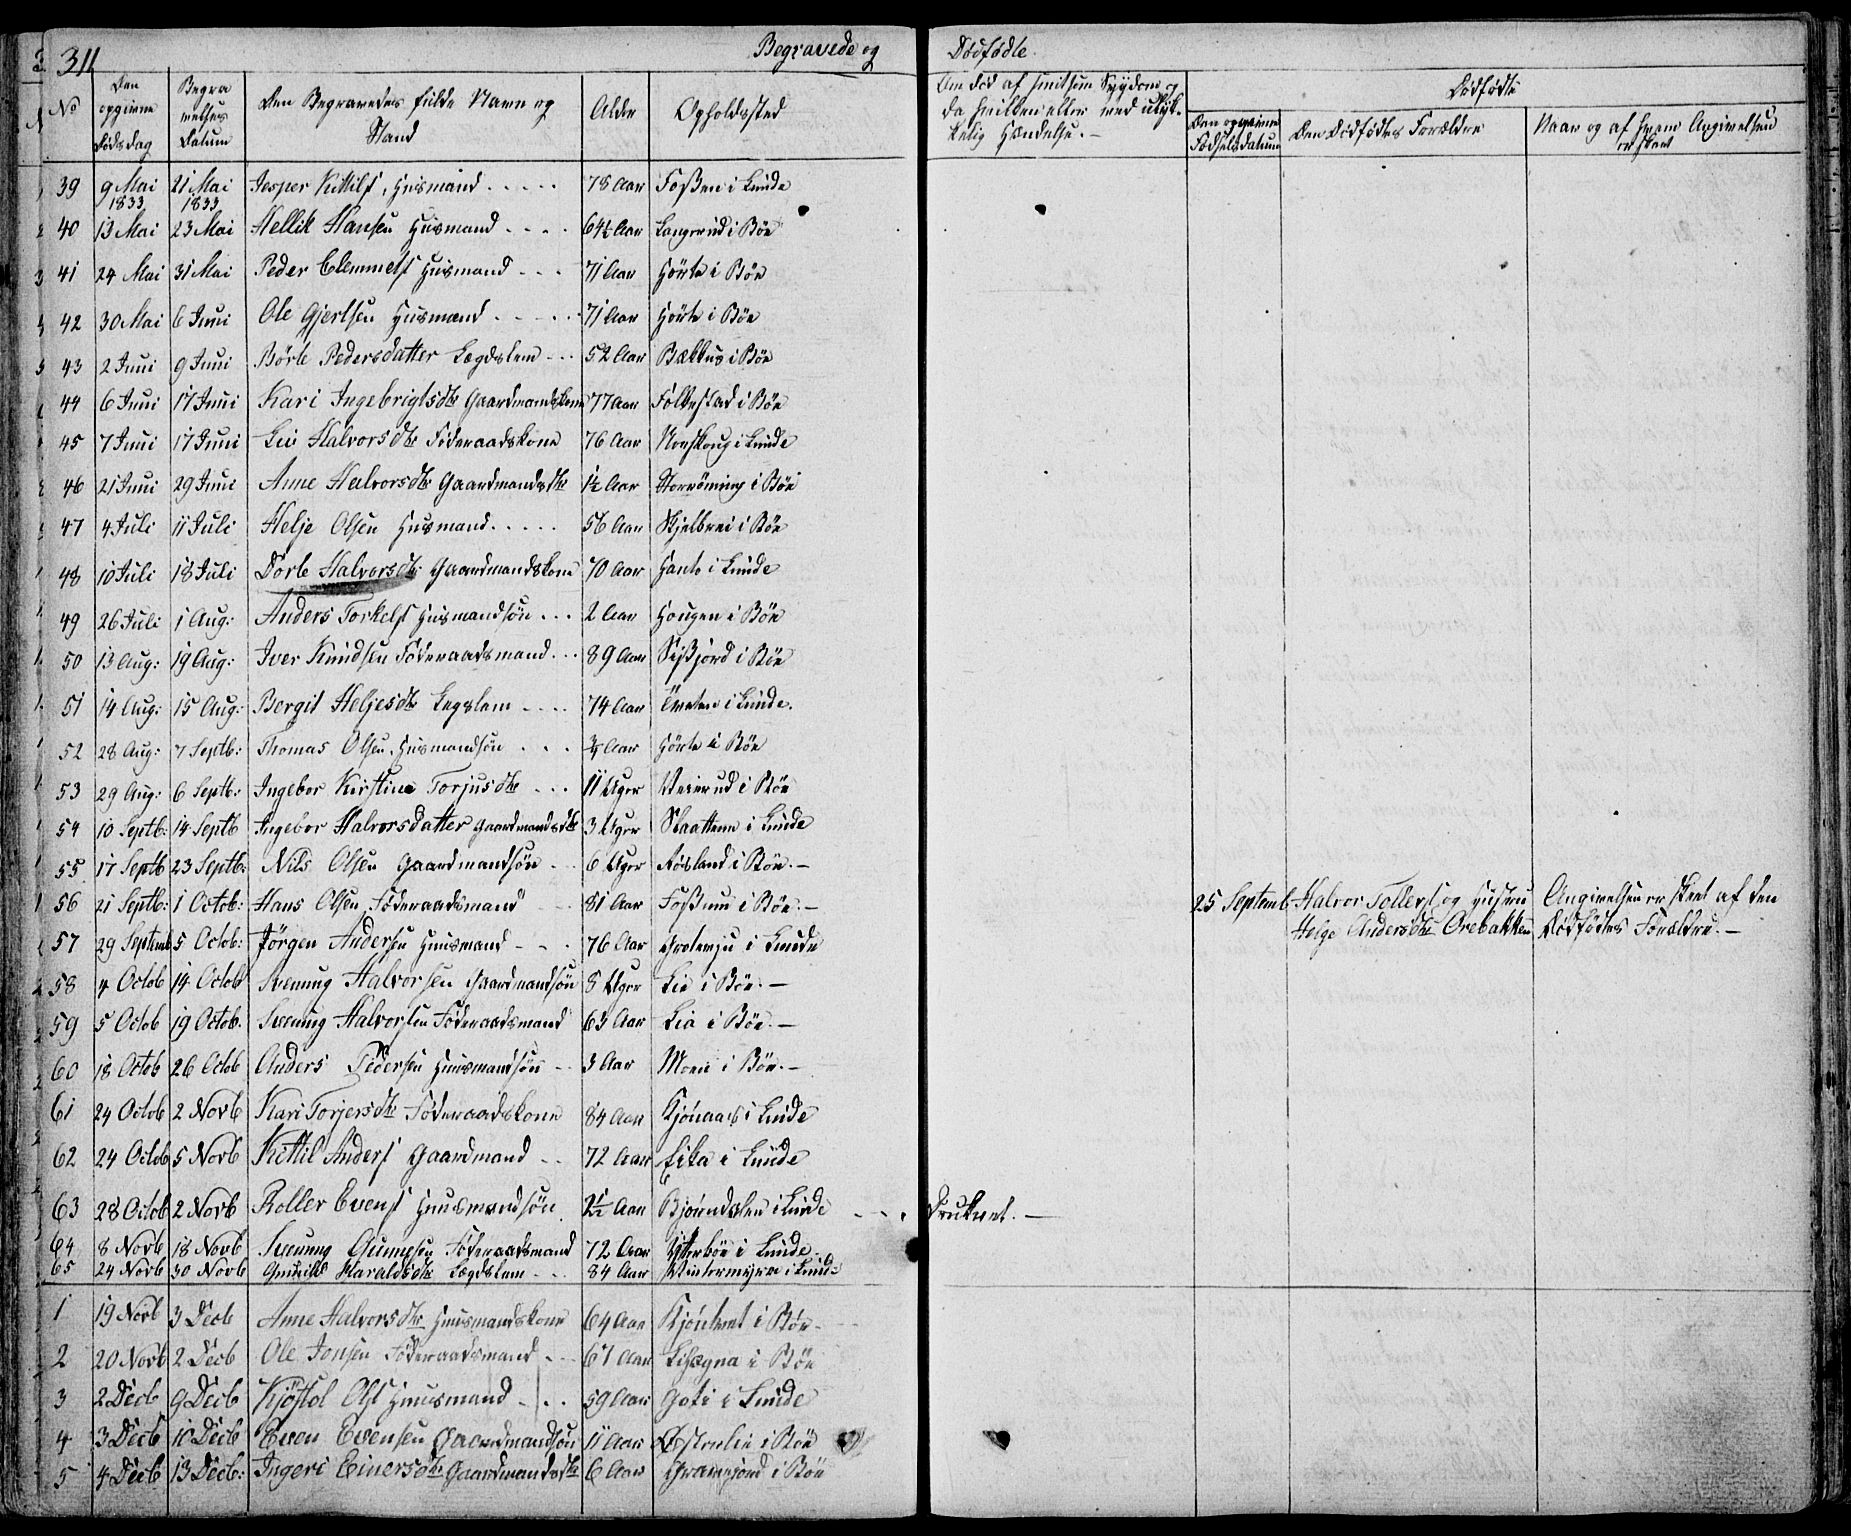 311 Begravede og Dødfødte.
No Den opgivne Dødsdag Begravelses Datum Den Begravedes fulde Navn og Stand Alder Opholdssted Om død af smitsom Sygdom og da hvilken eller ved ulykkelig Hændelse.- Dødfødte
Den opgivne Fødselsdatum Den Dødfødtes Forældre Naar og af hvem Angivelsen er skeet
39 9 Mai 1833 21 Mai 1833 Jesper Kittils. Huusmand 78 Aar Foßen i Lunde
40 13 Mai 23 Mai Hellik Hansen Huusmand 64½ Aar Langerud i Bøe
41 24 Mai 31 Mai Peder Clemmets Huusmand 71 Aar Hørte i Bøe
42 30 Mai 6 Juni Ole Gjertsen Huusmand 71 Aar Hørte i Bøe
43 2 Juni 9 Juni Børte Pedersdatter Lægdslem 52 Aar Bækkus i Bøe
44 6 Juni 17 Juni Kari Ingebrigtsdtr Gaardmandskone 77 Aar Folkestad i Bøe
45 7 Juni 17 Juni Liv Halvorsdtr Føderaadskone 76 Aar Norskoug i Lunde
46 21 Juni 29 Juni Anne Halvorsdtr Gaardmandsdtr 1½ Aar Storrønning i Bøe
47 4 Juli 11 Juli Helje Olsen Huusmand 56 Aar Skjelbrei i Bøe
48 10 Juli 18 Juli Dorte Halvorsdtr Gaardmandskone 70 Aar Hanto i Lunde
49 26 Juli 1 Aug: Anders Torkels Huusmandsøn 2 Aar Hougen i Bøe
50 13 Aug: 19 Aug: Iver Knudsen Føderaadsmand 89 Aar Sisjord i Bøe
51 14 Aug: 15 Aug: Bergit Heljesdtr Legslem 74 Aar Tveten i Lunde.
52 28 Aug: 7 Septb: Thomas Olsen Huusmandsøn ¾ Aar Hørte i Bøe
53 29 Aug: 6 Septb: Ingebor Kirstine Torjusdtr 11 Uger Verierud i Bøe
54 10 Septb: 14 Septb Ingebor Halvorsdatter Gaardmandsdtr 3 Uger Slaattene i Lunde
55 17 Septb 23 Septb: Nils Olsen Gaardmandsøn 6 Uger Aasland i Bøe.-
56 21 Septb: 1 Octob: Hans Olsen Føderaadsmand 81 Aar Foßum i Bøe.- 25 Septemb Halvor Tollevs og Hustru Angivelsen er skeet af den
57 29 Septemb 5 Octob: Jørgen Andersen Huusmand 76 Aar Grotensju i Lunde Helge Andersdtr Orebakken Dødfødtes Forældre.-
58 4 Octob 14 Octob Svenung Halvorsen Gaardmandsøn 8 Uger Lie i Bøe.-
59 5 Octob 19 Octob. Svenung Halvorsen Føderaadsmand 63 Aar Lia i Bøe.-
60 18 Octob 26 Octob Anders Pedersen Huusmandsøn 3 Aar Moen i Bøe.-
61 24 Octob 2 Novb Kari Torjersdtr Føderaadskone 84 Aar Kjønaas i Lunde
62 24 Octob 5 Novb Kittil Anders Gaardmand 72 Aar Eika i Lunde
63 28 Octob 2 Novb Roller Evens Huusmandsøn 2½ Aar Bjørndalen i Lunde Druknet.-
64 8 Novb 18 Novb Svenung Gunnesen Føderaadsmand 72 Aar Ytterbøe i Lunde
65 24 Novb 30 Novb Gunnild Haraldsdtr Lægdslem 84 Aar Vintermyra i Lunde
1 19 Novb 3 Decb Anne Halvorsdtr Huusmandskone 64 Aar Kjøntvet i Bøe
2 20 Novb 2 Decb Ole Jonsen Føderaadsmand 67 Aar Lihægna i Bøe
3 2 Decb 9 Decb Kjøstol Ols Huusmand 59 Aar Gote i Lunde
4 3 Decb 10 Decb Even Evensen Gaardmandsøn 11 Aar Østerlie i Bøe
5 4 Decb 13 Decb: Ingeri Einersdtr Gaardmandsdtr 6 Aar Gravejord i Bøe